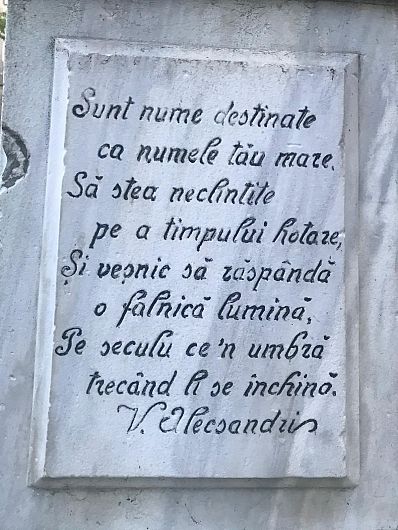 Sunt nume destinate
ca numele tău mare.
Să stea neclintite
pe a timpului hotare,
Și veșnic să răspândă
o falnică lumină,
Pe seculu ce'n umbră
trecând li se închină.
V. Alecsandri